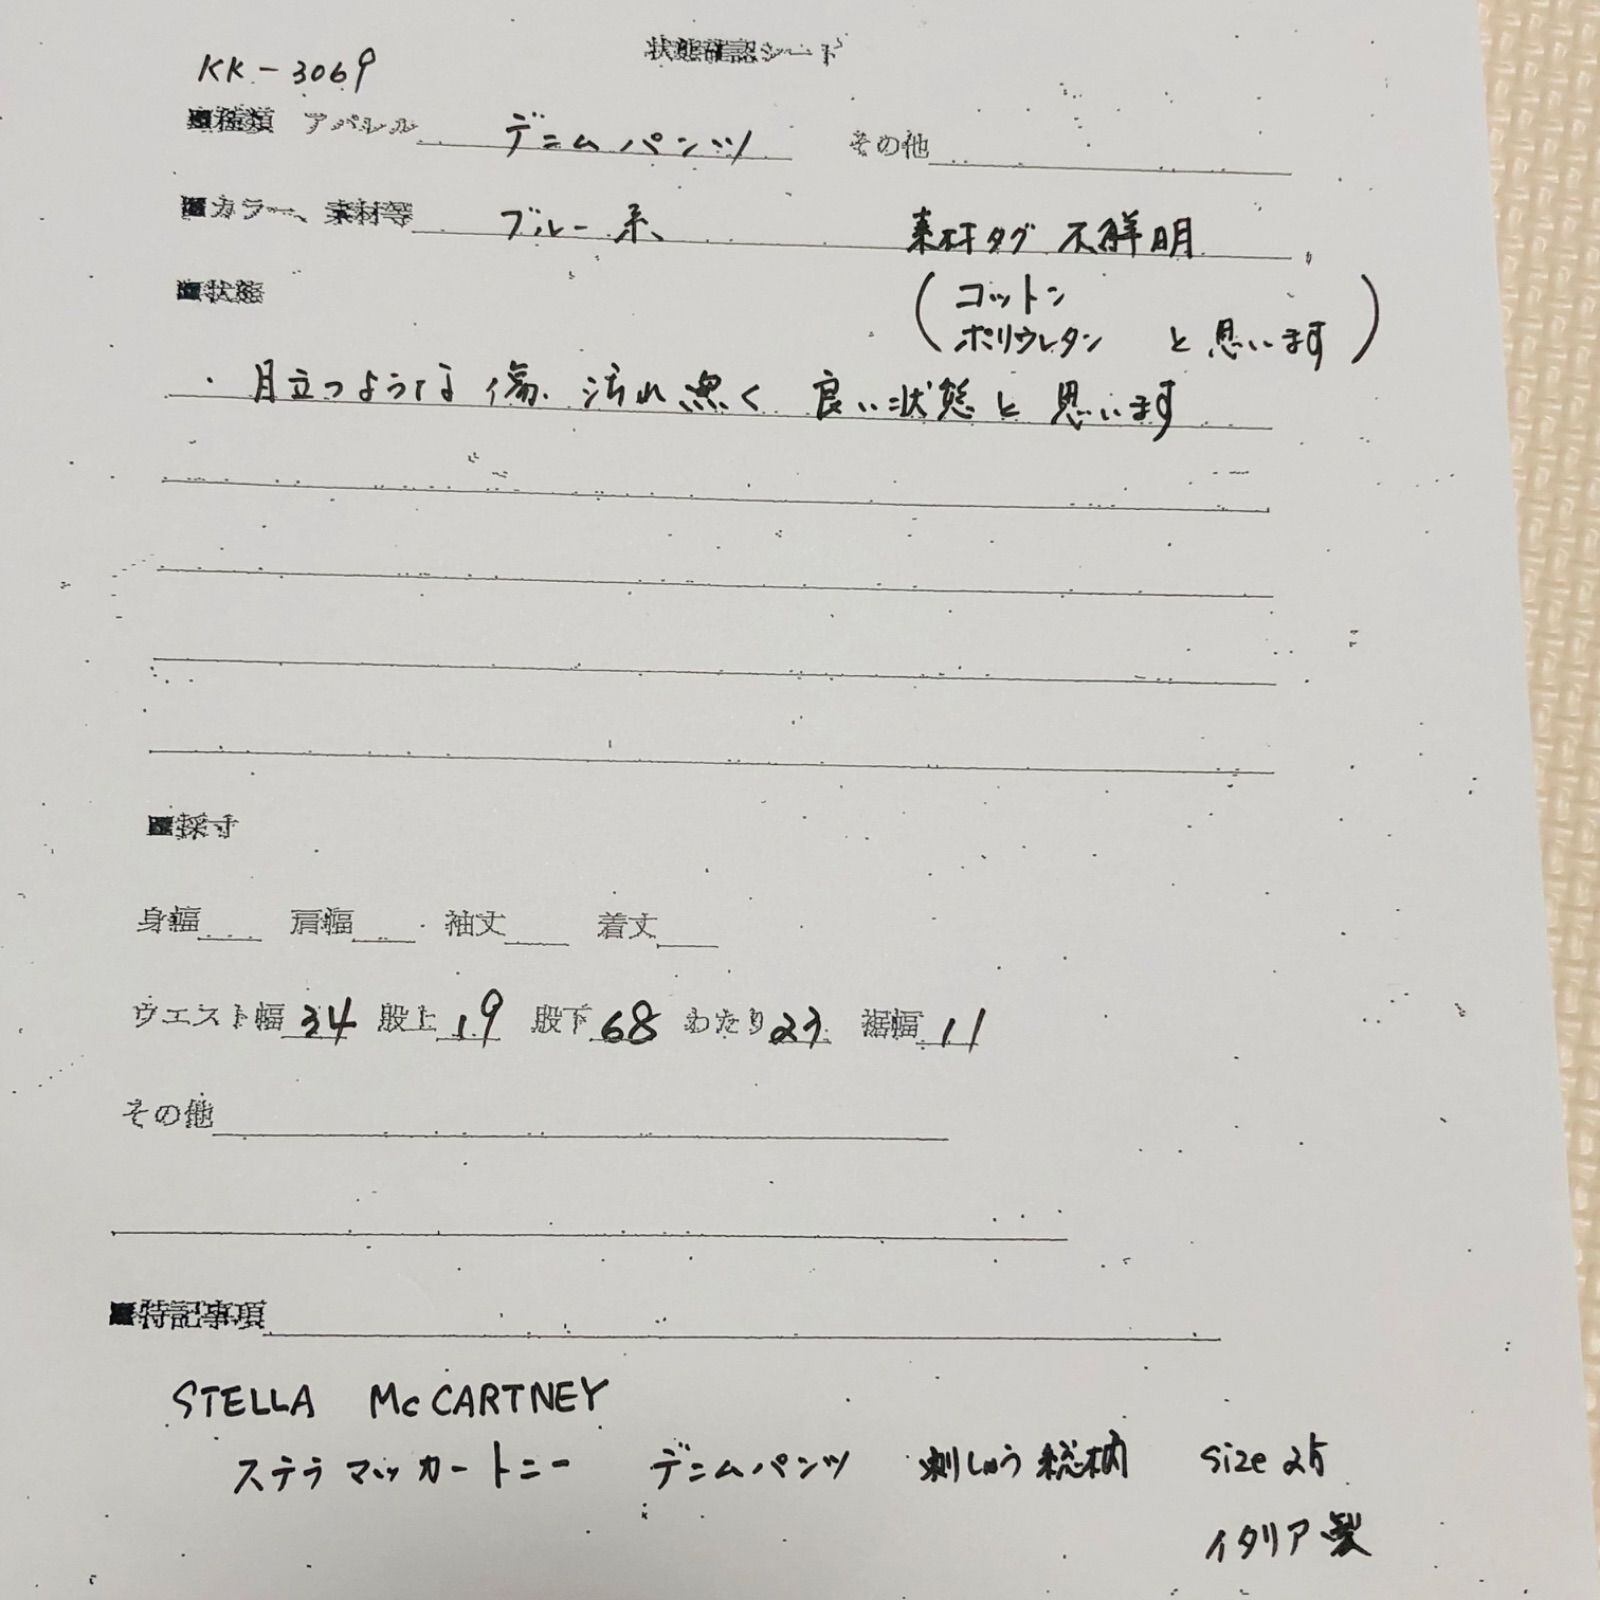 状態確認シート
KK-3069
■種類 アパレル デニムパンツ その他
■カラー、素材等 ブルー系、 素材タグ 不鮮明
■状態
(コットン
ポリウレタン と思います)
・目立つような傷、汚れ無く 良い状態と思います
■採寸
身幅 肩幅 袖丈 着丈
ウエスト幅 34 股上 19 股下 68 わたり 23 裾幅 11
その他
■特記事項
STELLA McCARTNEY
ステラマッカートニー デニムパンツ 刺しゅう総柄 size 25
イタリア製